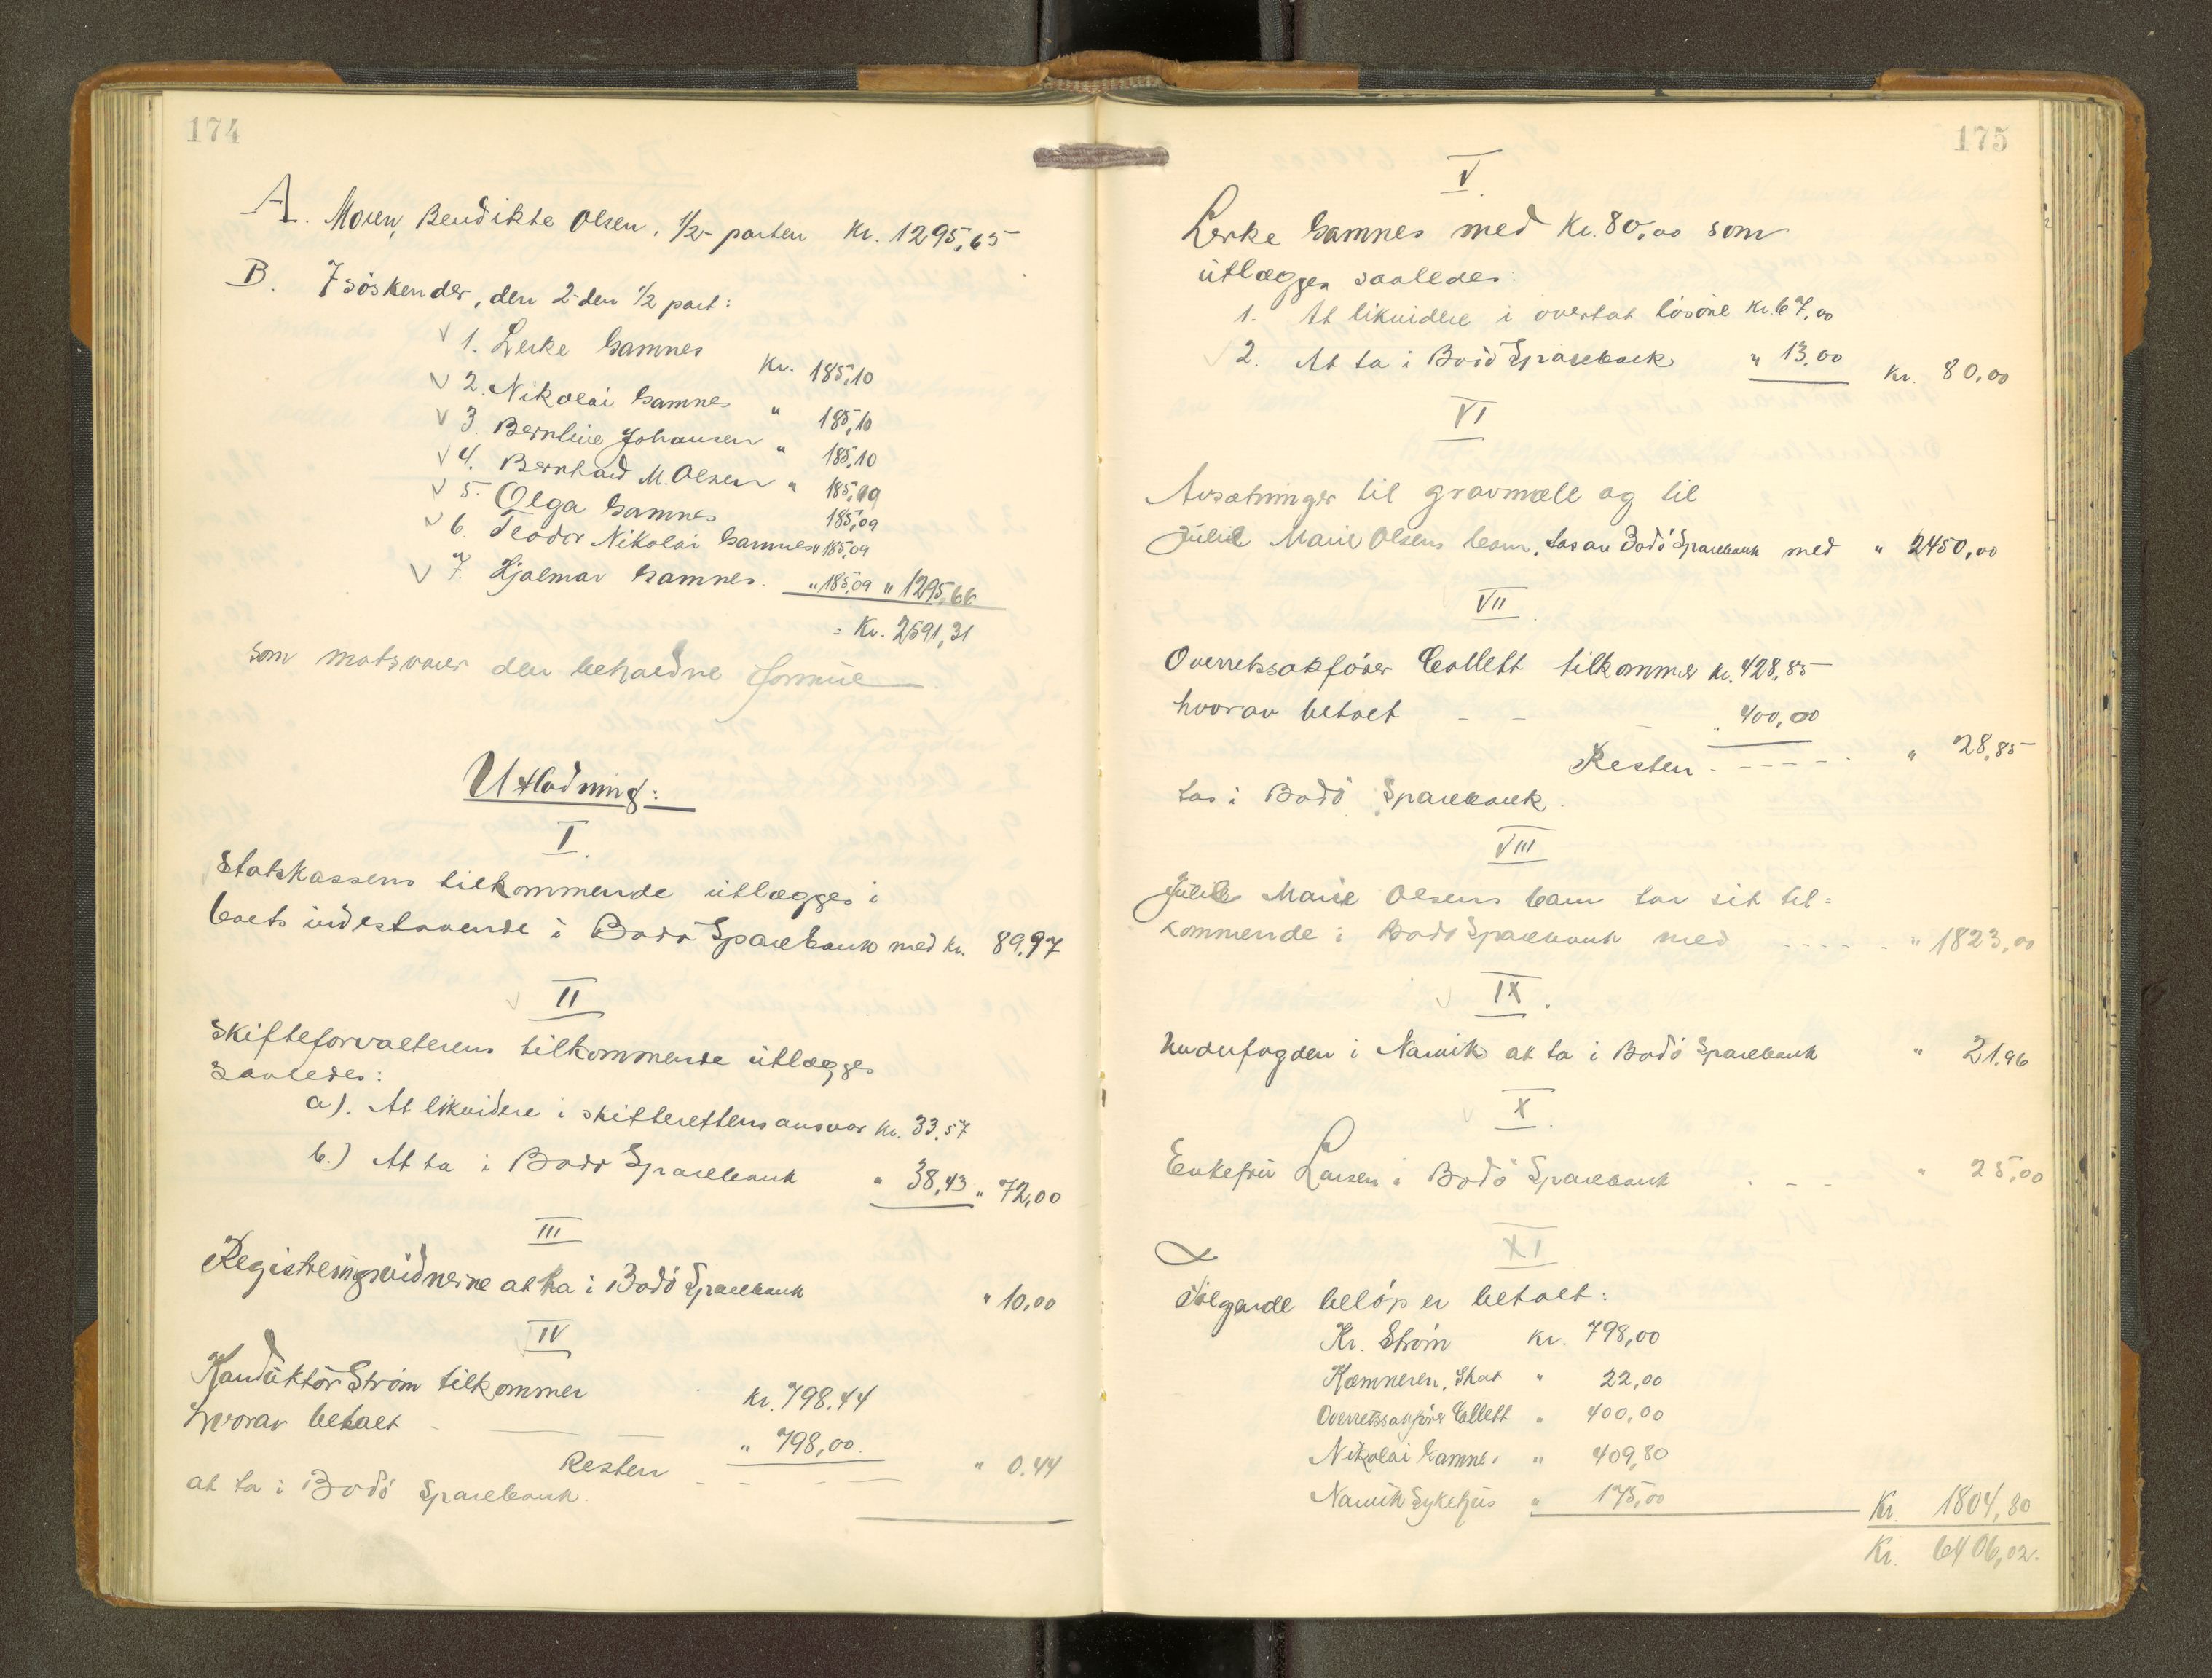 174
A. Moren, Bendikte Olsen, 1/2-parten Kr. 1295,65
B. 7 søskender, den 2-den 1/2 part:
1. Lerke Gamnes Kr. 185,10
2. Nikolai Gamnes " 185,10
3. Berntine Johansen " 185,10
4. Bernhard M. Olsen " 185,09
5. Olga Gamnes 185,09
6. Teodor Nikolai Gamnes " 185,09
7. Hjalmar Gamnes. " 185,09 " 1295,66
= Kr. 2591,31
som motsvarer den beholdne formue
Utlodning:
I.
Statskassens tilkommende utlægges i
boets indestaaende i Bodø Sparebank med kr. 89,97
II
Skifteforvalterens tilkommende utlægges
saaledes:
a). At likvidere i skifterettens ansvar kr. 33,57
b.) At ta i Bodø Sparebank " 38,43 " 72,00
III
Registreringsvidnerne at ta i Bodø Sparebank " 10,00
IV
Konduktør Strøm tilkommer kr. 798,44
hvorav betalt " 798,00
Resten " 0,44
at ta i Bodø Sparebank.
175
V.
Lerke Gamnes med Kr. 80,00 som
utlægges saaledes:
1. At likvidere i overtat løsøre Kr. 67,00
2. At ta i Bodø Sparebank " 13,00 Kr. 80,00
VI
Avsætninger til gravmæle og til
Julie Marie Olsens barn, tas av Bodø Sparebank med " 2450,00
VII
Overretssakfører Collett tilkommer kr. 428,85
hvorav betalt " 400,00
Resten " 28,85
tas i Bodø Sparebank.
VIII
Julie Marie Olsens barn tar sit til=
kommende i Bodø Sparebank med " 1823,00
IX.
Underfogden i Narvik at ta i Bodø Sparebank " 21,96
X.
Enkefru Larsen i Bodø Sparebank " 25,00
XI
Følgende beløp er betalt:
Kr. Strøm kr. 798,00
Kæmneren, Skat " 22,00
Overretssakfører Collett " 400,00
Nikolai Gamnes " 409,80
Narvik Sykehus " 175,00 Kr. 1804,80
Kr. 6406,02.